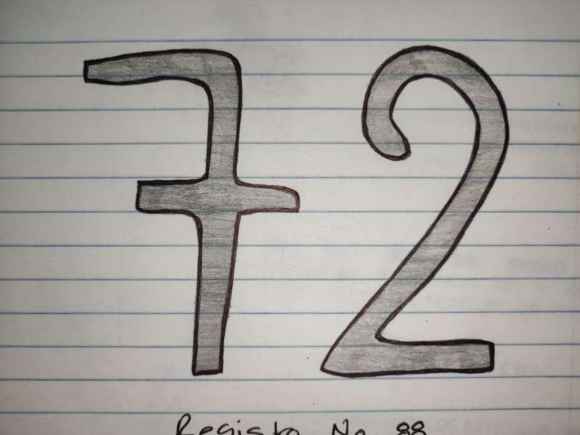 72
Registo No 88